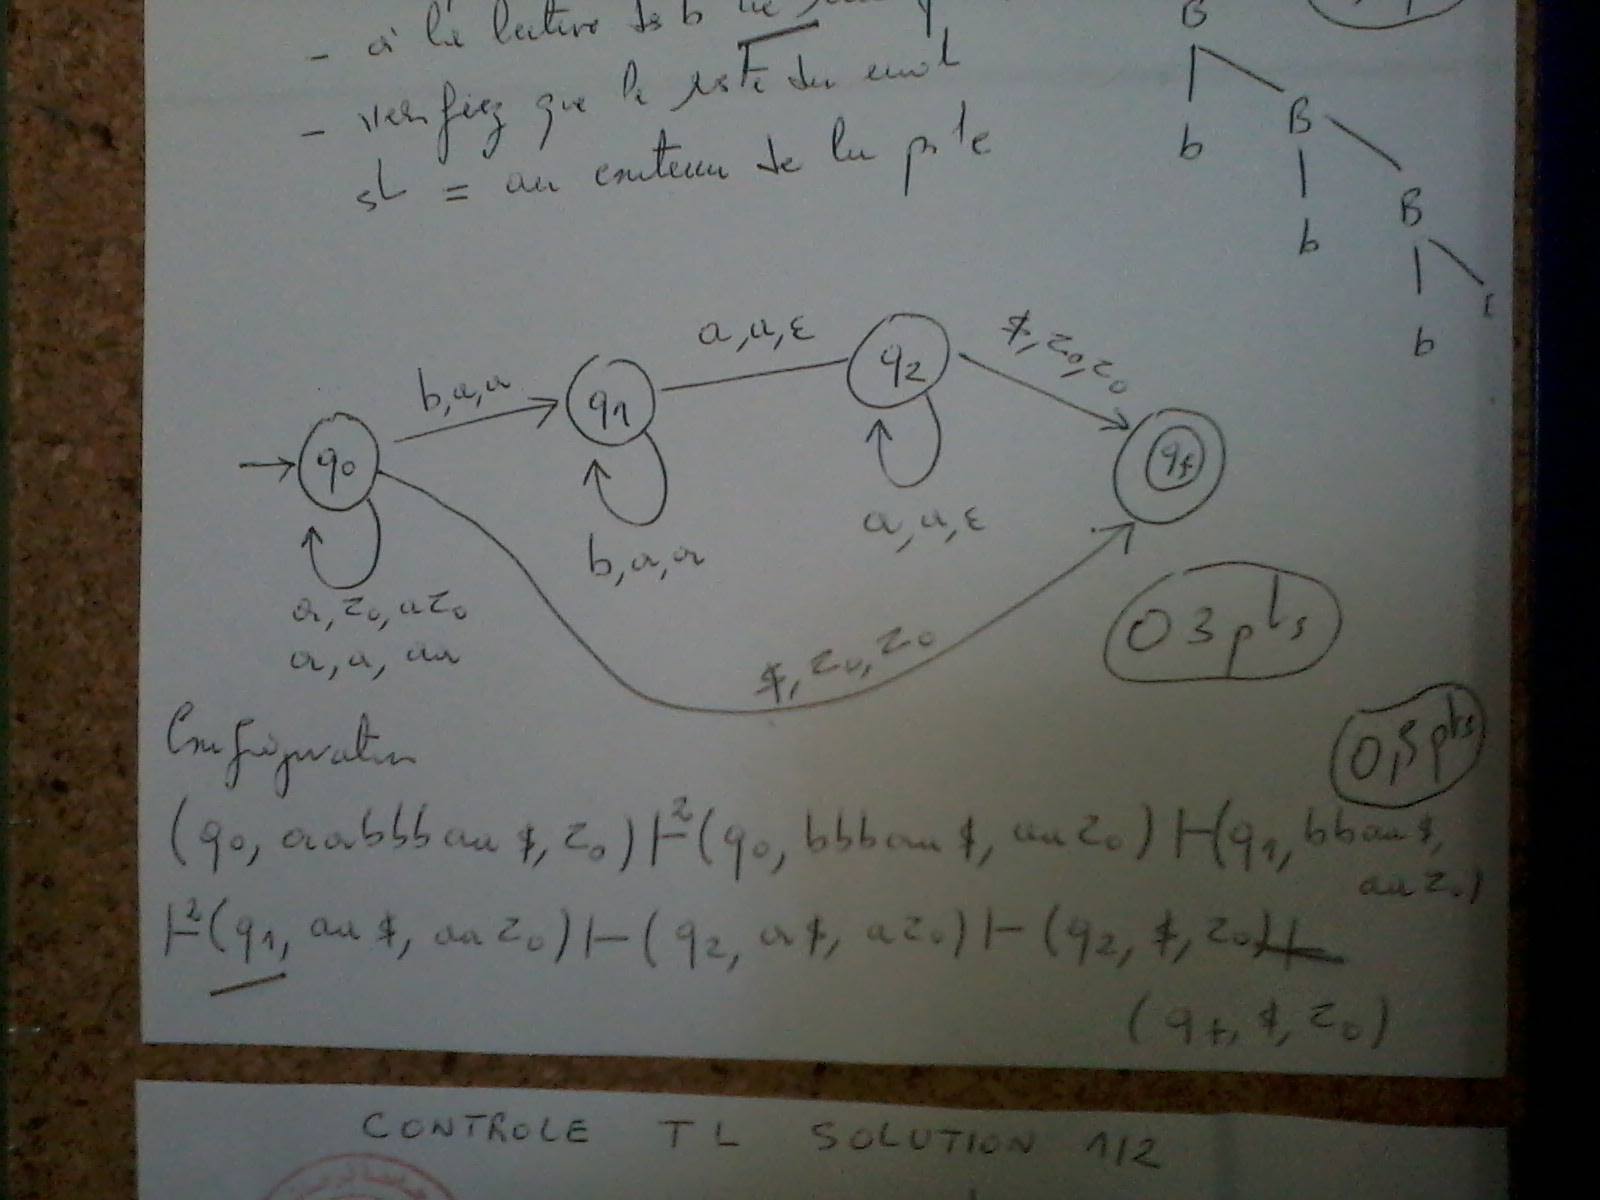 - à la lecture des b ne
B
- verifiez que le reste du mot
B
st = au contenu de la pile
b
B
b
b
a,a,ε
$,z0,z0
b,a,a
q0
q1
q2
qf
b,a,a
a,a,ε
a,z0,az0
a,a,aa
$,z0,z0
03pts
Configuration
0,5pts
(q0, aabbbaa$,z0)⊢²(q0, bbbaa$, aaz0)⊢(q1, bbaa$,
aaz0)
⊢²(q1, aa$, aaz0)⊢(q2, a$, az0)⊢(q2, $, z0)⊢
(qf, $, z0)
CONTROLE TL SOLUTION 1/2